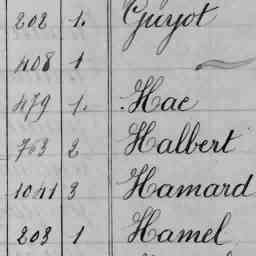 202 1. Guyot
408 1
479 1. Hae
763 2 Halbert
1041 3 Hamard
203 1 Hamel